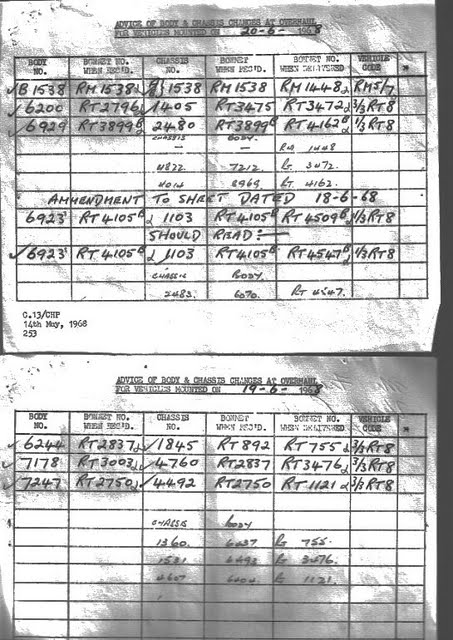 ADVICE OF BODY & CHASSIS CHANGES AT OVERHAUL
FOR VEHICLES MOUNTED ON 20-6- 1968
BODY NO. BONNET NO. WHEN REC'D. CHASSIS NO. BONNET WHEN REC'D. BONNET NO. WHEN DELIVERED VEHICLE CODE *
✓B1538 RM1538 1538 RM1538 RM1448 RM5/7
✓6200 RT2796 ✓1405 RT3475 RT3472 3/3RT8
✓6929 RT3899 2480 RT3899 RT4162 1/3RT8
CHASSIS BODY
— — RM 1448
4822 7212 Rt 3472.
4014 8969 Rt 4162.
AMMENDMENT TO SHEET DATED 18-6-68
6923 RT4105 1103 RT4105 RT4509 1/3RT8
SHOULD READ:—
✓6923 RT4105 1103 RT4105 RT4547 1/3RT8
CHASSIS BODY
2483. 6070. Rt 4547.
C.13/CHP
14th May, 1968
253
ADVICE OF BODY & CHASSIS CHANGES AT OVERHAUL
FOR VEHICLES MOUNTED ON 19-6- 1968
BODY NO. BONNET NO. WHEN REC'D. CHASSIS NO. BONNET WHEN REC'D. BONNET NO. WHEN DELIVERED VEHICLE CODE *
✓6244 RT2837 ✓1845 RT892 RT755 3/3RT8
✓7178 RT3003 ✓4760 RT2837 RT3476 3/3RT8
✓7247 RT2750 ✓4492 RT2750 RT1121 3/3RT8
CHASSIS BODY
1360. 6437 Rt 755.
1531 6493 Rt 3476.
4607 6404 Rt 1121.